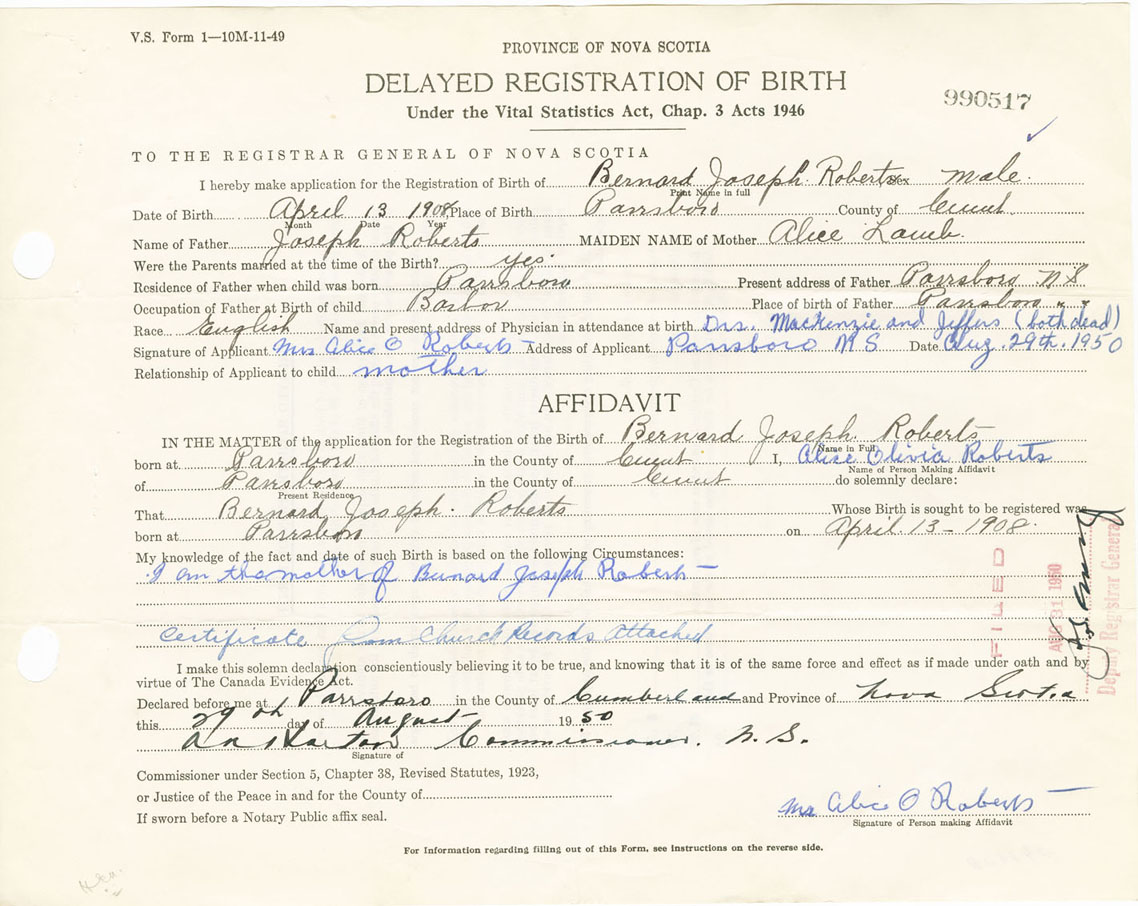 V.S. Form 1—10M-11-49
PROVINCE OF NOVA SCOTIA
DELAYED REGISTRATION OF BIRTH
990517
Under the Vital Statistics Act, Chap. 3 Acts 1946
TO THE REGISTRAR GENERAL OF NOVA SCOTIA
I hereby make application for the Registration of Birth of Bernard Joseph Roberts Sex Male.
Print Name in full
Date of Birth April 13 1908 Place of Birth Parrsboro County of
Month Date Year
Name of Father Joseph Roberts MAIDEN NAME of Mother Alice Lamb.
Were the Parents married at the time of the Birth? yes.
Residence of Father when child was born Parrsboro Present address of Father Parrsboro N S
Occupation of Father at Birth of child Place of birth of Father Parrsboro " "
Race English Name and present address of Physician in attendance at birth Drs. MacKenzie and Jeffers (both dead)
Signature of Applicant Mrs Alice O Roberts Address of Applicant Parrsboro N S Date Aug. 29th. 1950
Relationship of Applicant to child mother
AFFIDAVIT
IN THE MATTER of the application for the Registration of the Birth of Bernard Joseph Roberts
Name in Full
born at Parrsboro in the County of I, Alice Olivia Roberts
Name of Person Making Affidavit
of Parrsboro in the County of do solemnly declare:
Present Residence
That Bernard Joseph. Roberts Whose Birth is sought to be registered was
born at Parrsboro on April 13 - 1908.
My knowledge of the fact and date of such Birth is based on the following Circumstances:
I am the mother of Bernard Joseph Roberts
Certificate from Church Records Attached
FILED
AUG 31 1950
Deputy Registrar General
I make this solemn declaration conscientiously believing it to be true, and knowing that it is of the same force and effect as if made under oath and by
virtue of The Canada Evidence Act.
Declared before me at Parrsboro in the County of Cumberland and Province of Nova Scotia
this 29th day of August 1950
Commissioner. N. S.
Signature of
Commissioner under Section 5, Chapter 38, Revised Statutes, 1923,
or Justice of the Peace in and for the County of
If sworn before a Notary Public affix seal.
Mrs Alice O Roberts
Signature of Person making Affidavit
For Information regarding filling out of this Form, see instructions on the reverse side.